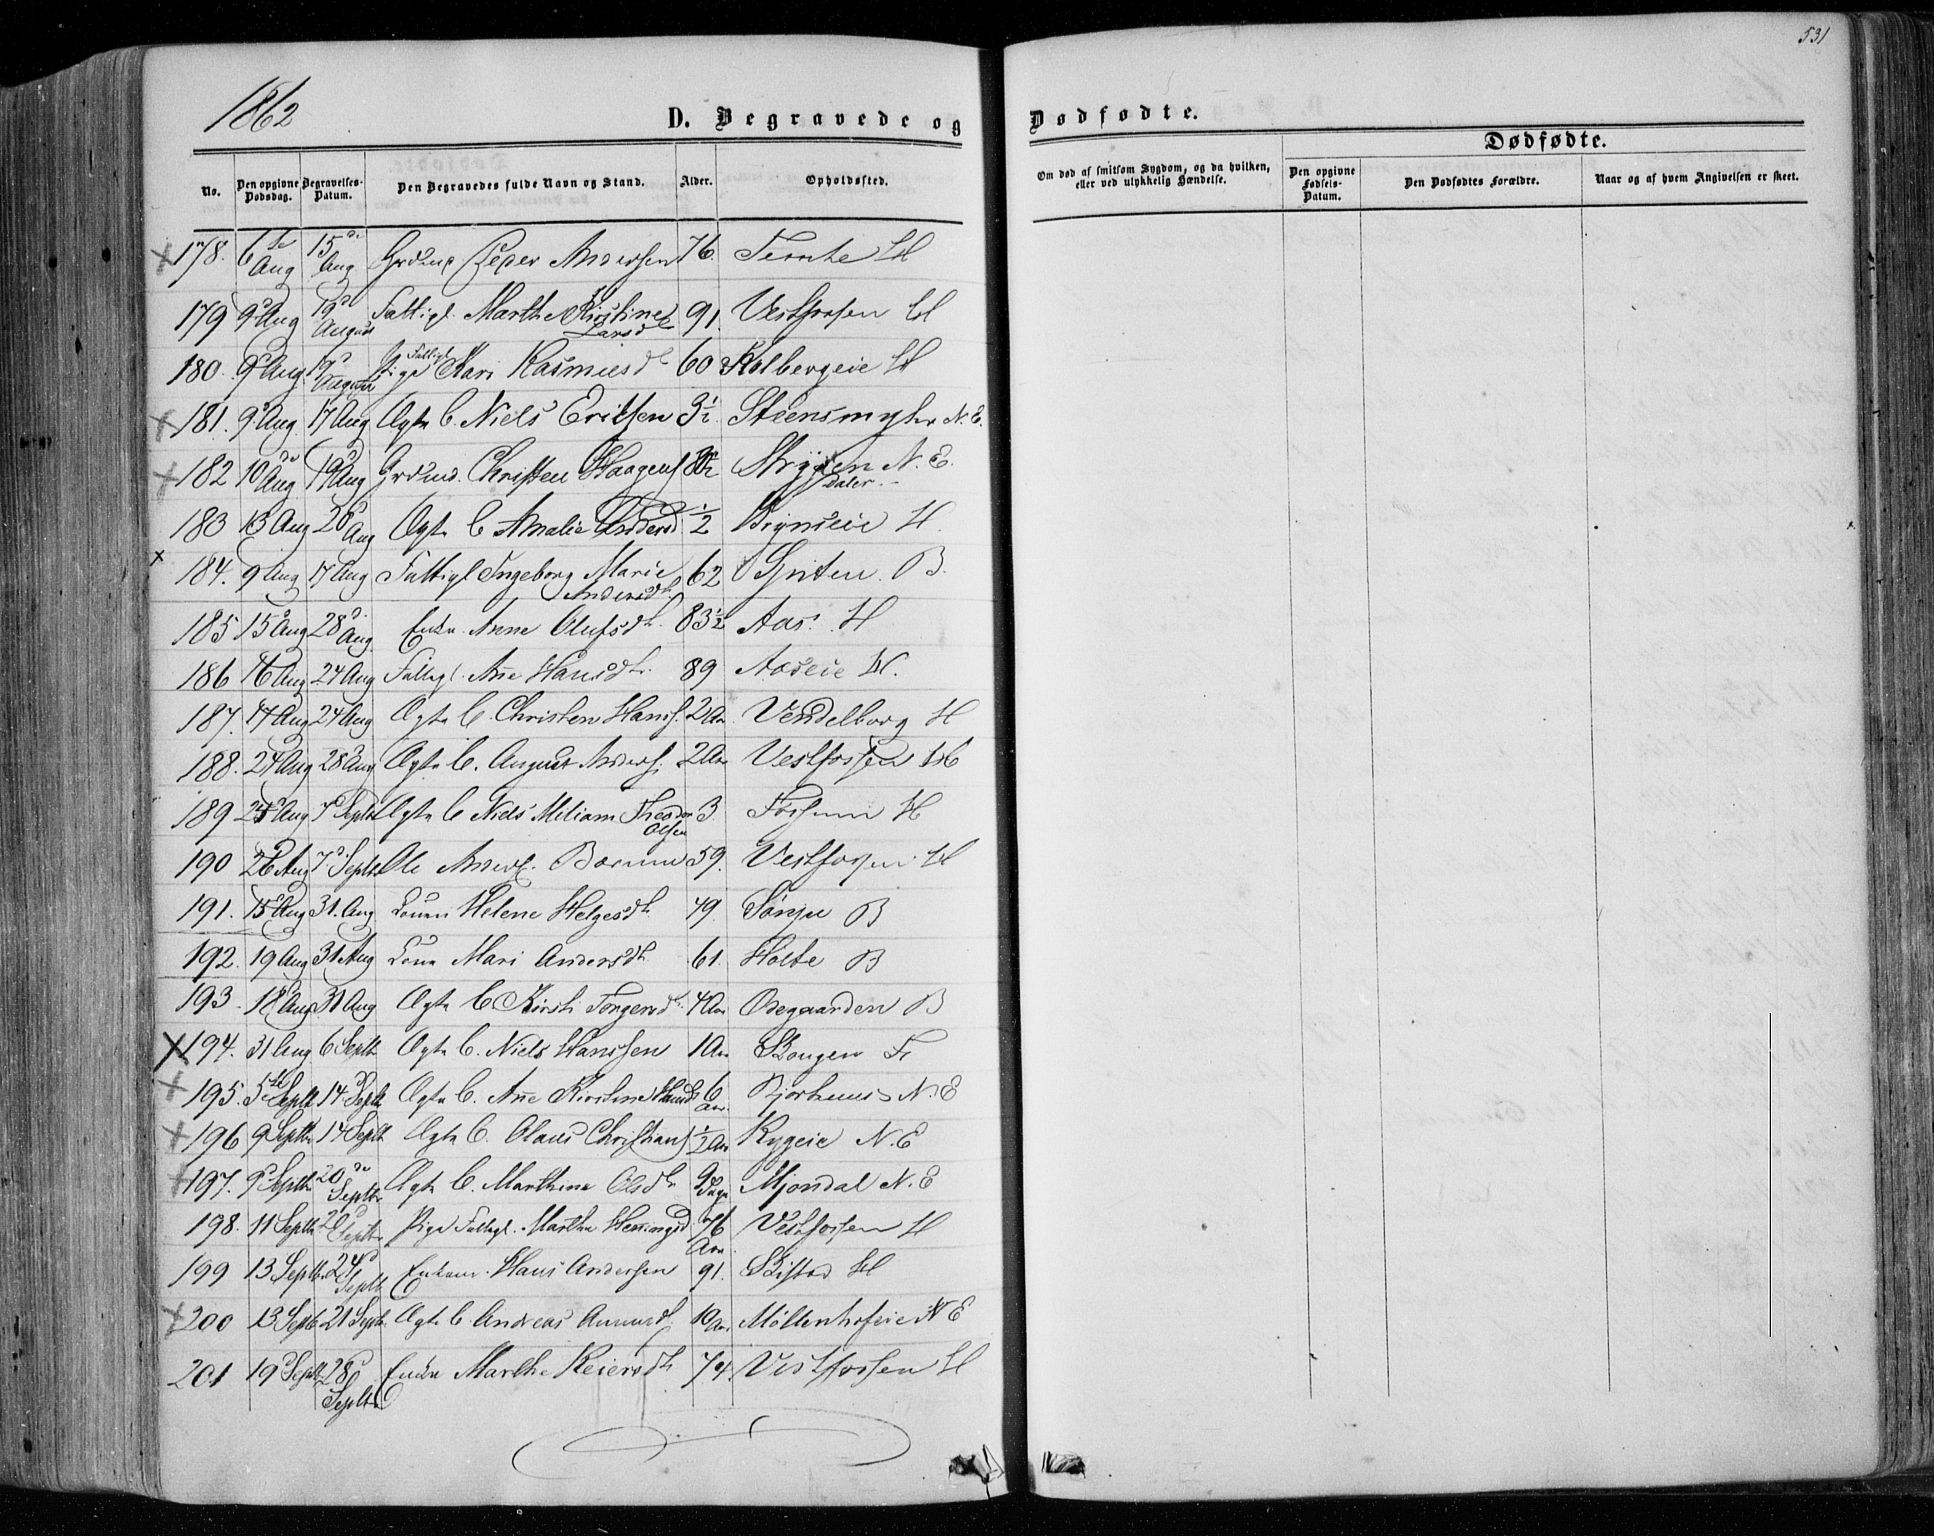 531
1862
D. Begravede og Dødfødte.
Dødfødte.
No. Den opgivne Dødsdag. Begravelses-Datum. Den Begravedes fulde Navn og Stand. Alder. Opholdssted.
Om død af smitsom Sygdom, og da hvilken, eller ved ulykkelig Hændelse. Den opgivne Fødsels-Datum. Den Dødfødtes Forældre. Naar og af hvem Angivelsen er skeet.
178. 6te Aug 15de Aug Peder Andersen 76. Ternte H
179 9d Aug 19de August Fattigl. Marthe Kirstine Larsdr 91. Vestfossen H
180. 9d Aug. 19d August Fattigl Pige Kari Rasmusdr 60 Kolbergeie H
181. 9d Aug 17 Aug Ægte B. Niels Eriksen 3½. Steensmyhr N.E.
182 10de Aug 19d Aug Grdmd. Christen Haagens Stryken N.E. daler.
183 13 Aug 28d Aug Ægte B Amalie Andersd ½ Brynseie H.
184. 9 Aug 17 Aug Fattigl Ingeborg Marie Andersdr. 62 Griten. B.
185 15d Aug 28d. Aug. Enke. Anne Olufsdr. 83½ Aas. H
186 16 Aug 24 Aug Fattigl. Ane Hansdr. 89 Aaseie H.
187. 17 Aug 24 Aug Ægte B. Christen Hans. 2 Aar Vendelborg H
188. 24 Aug 28 Aug Ægte B. August Anders. 2 Aar Vestfossen H
189 25 Aug 7d Septb Ægte B Niels Miliam Theodor Olsen 3. Fossum H
190 26 Aug 7d. Septb Ole Anders. Bærum 59. Vestfossen. H
191. 15 Aug 31. Aug Kone Helene Helgesdr. 49. Sønju B
192. 19 Aug 31 Aug Kone Mari Andersdr 61. Holte B
193. 18 Aug 31 Aug Ægte B Kirsti Torgersd. 4 Aar Ødegaarden B
194. 31 Aug 6 Septb Ægte B. Niels Hanssen 1 Aar Skougen F.
195. 5te Septb 14 Septb Ægte B. Ane Kirstine Hansd 6 Aar. Bjørhuus N.E
196 9 Septb 14 Septb Ægte B. Olaus Christians ½ Aar Rygeie N.E
197. 9d Septb 20de Septb Ægte B. Marthine Olsdr. 9 Dage Mjøndal N.E
198. 11 Septb 20d Septb Pige Fattigl. Marthe Henningsd 76 Aar. Vestfossen H
199 13 Septb. 24d Septb Enkem. Hans Andersen 91. Skistad H
200 13 Septb 21 Septb. Ægte B. Andreas 10 Aar Møllenhofeie N E
201 19d Septb 28d Septb Enke Marthe Reiersdr 74. Vestfossen H